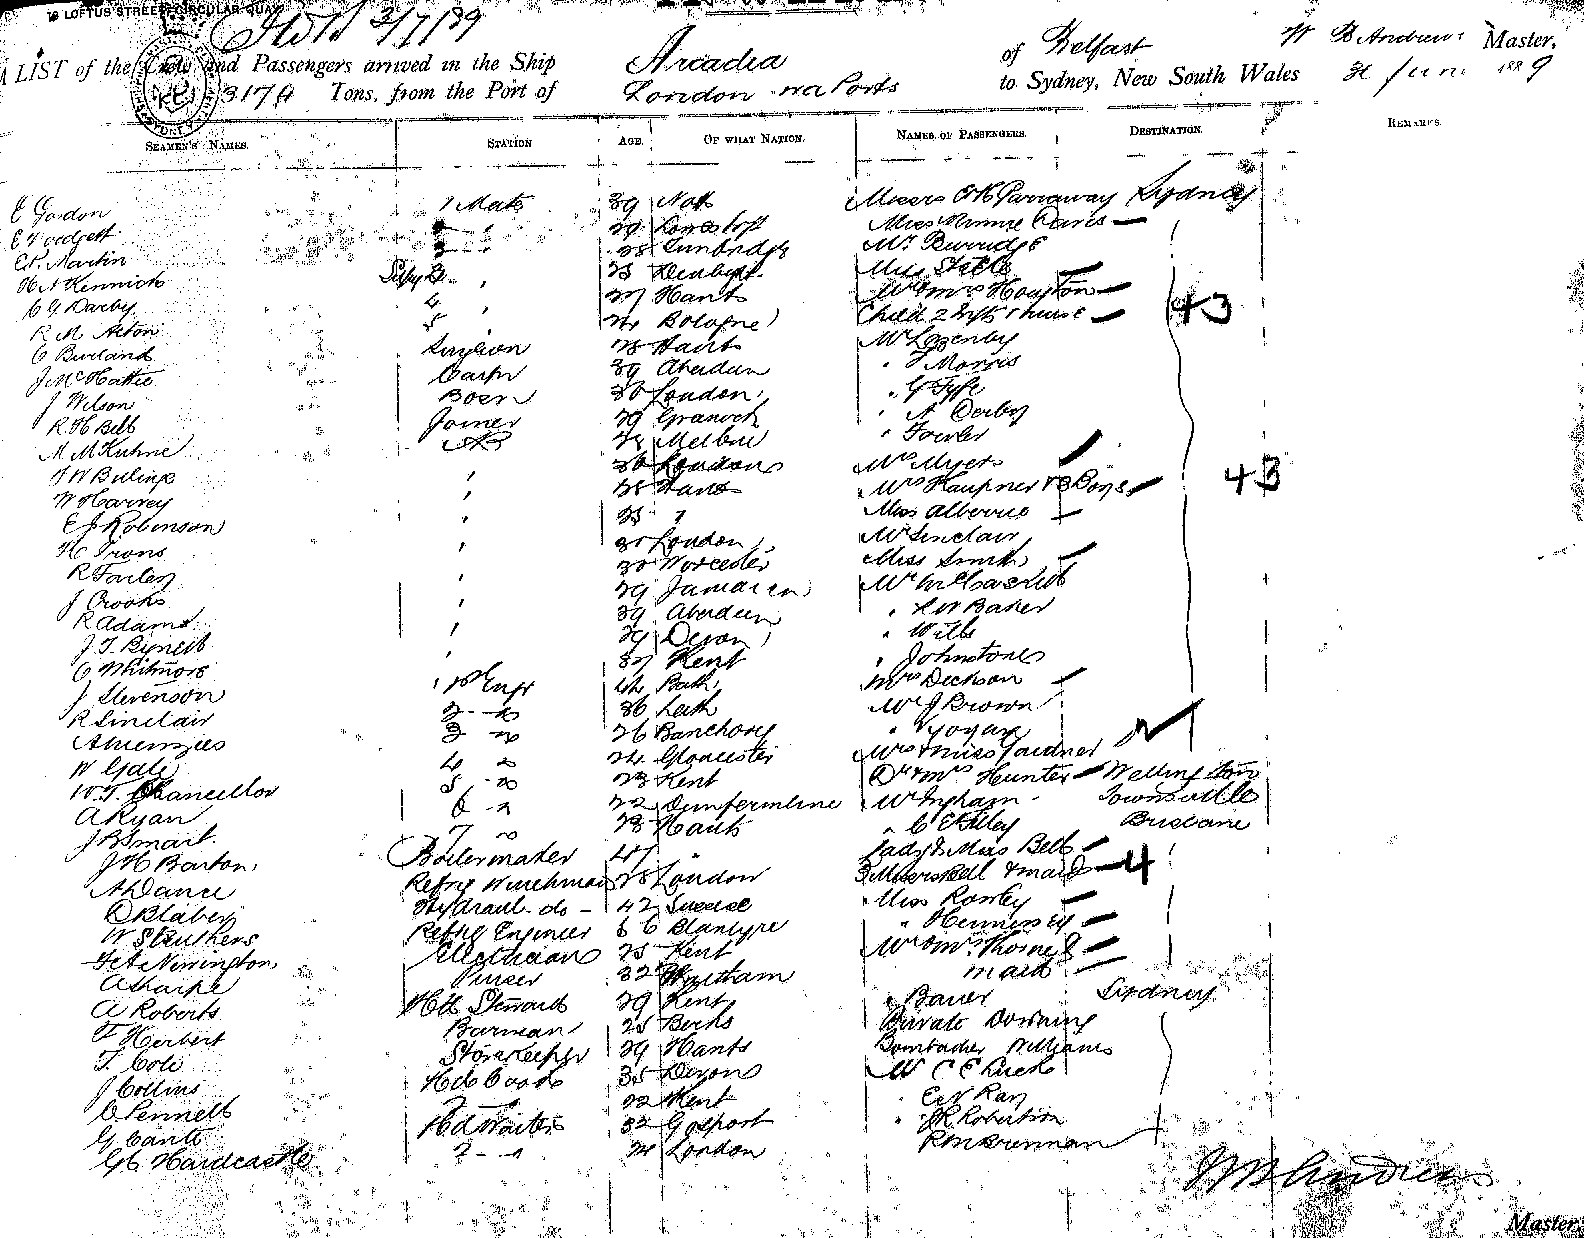 LOFTUS STREET CIRCULAR QUAY
3/7/89
A LIST of the Crew and Passengers arrived in the Ship Arcadia of Belfast W B Andrews Master,
3174 Tons, from the Port of London via Ports to Sydney, New South Wales June 1889
SEAMEN'S NAMES. STATION AGE. OF WHAT NATION. NAMES OF PASSENGERS. DESTINATION. REMARKS.
E Gordon 1 Mate 39 Sydney
Miss Minnie Davis
C P. Martin Tunbridge Mr Burridge
H A Kennick 25 Miss
C G Darby 4 27 Hants Mr & Mrs Houston
R M Acton 5 24 Bologne Child 2 Infts & nurse 43
C Burland 28 Hants Mr Lezenby
J McHattie Carpr 39 Aberdeen " F Morris
J Wilson Bosn London " G Fyfe
R H Bell Joiner 29 Granoch " A Derby
A M Kuhne AB Melbne " Fowler
London Mrs Myers
W Harvey 25 Hants Mrs Haupner & 3 Boys 43
E J Robinson Miss
H Irons London Mr Sinclair
R Farley 30 Worcester Miss Smith
J Crooks 29 Jamaica Mr
R Adams 39 Aberdeen " Baker
29 Devon " Wills
C Whitmore 37 Kent " Johnstone
J Stevenson 1st Engr 44 Bath Mrs Dickson
R Sinclair 2 - do 36 Leith Mr J Brown
A Menzies 3 do 26 Banchory
W Gale 4 do 24 Gloucester Mrs & Miss Gardner
W. T. Chancellor 5 - do 23 Kent Dr & Mrs Hunter Wellington
A Ryan 6 - do 22 Dumfermline Mr Ingham Townsville
J B Smart 7 do 28 Hants Brisbane
J H Barton Boilermaker 47 " Lady & Miss Bell
A Dance Refrig Winchman 28 London & maid 4
O Blabey Hydraul. do - 42 Miss Rowley
Refrig Engineer 66 Blantyre " Hennessey
F A Newington Electrician 25 Kent Mr & Mrs Thorne &
A Sharpe Purser 32 Wrentham maid
A Roberts Hd Steward 29 Kent " Bauer Sydney
F Herbert Barman 25 Berks Private Downing
T. Cole Storekeeper 29 Hants Bombadier Williams
J Collins Hd Cook 35 Devon Mr C E
C Pennell 2 22 Kent " Ray
G Cante Hd Waiter 32 Gosport " J R Robertson
G C Hardcastle 2 - 24 London R M Brennan
W B Andrews
Master